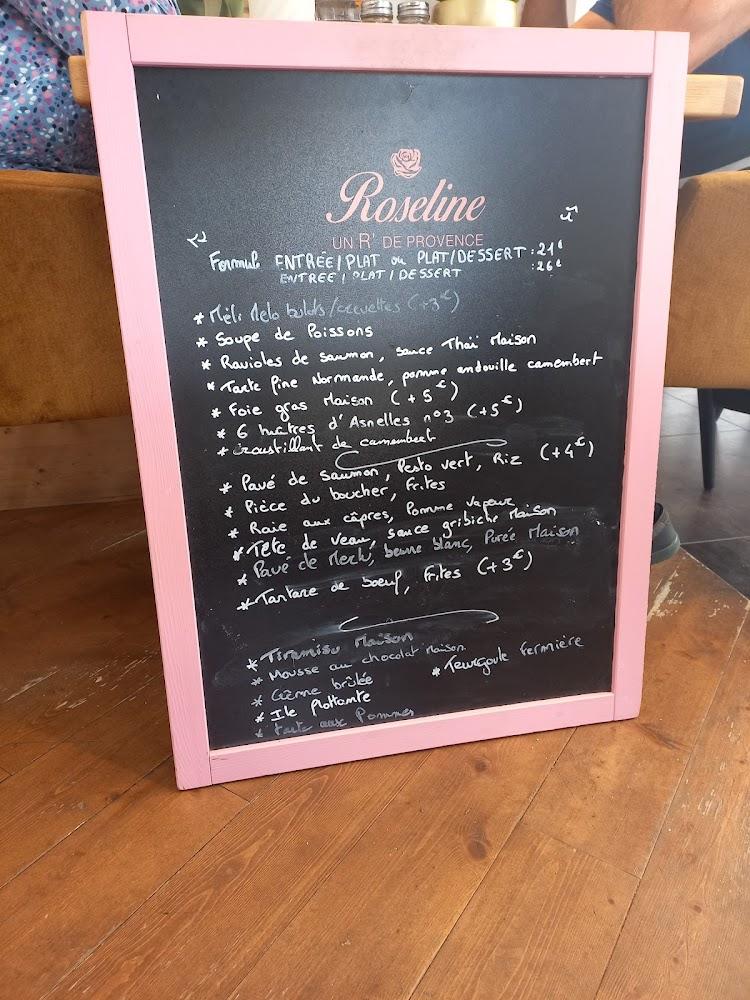 Roseline
UN R' DE PROVENCE
Formule ENTRÉE/PLAT ou PLAT/DESSERT : 21€
ENTRÉE/PLAT/DESSERT : 26€
* Méli Melo bulots/crevettes (+3€)
* Soupe de Poissons
* Ravioles de saumon, sauce Thaï Maison
* Tarte fine Normande, pomme andouille camembert
* Foie gras Maison (+5€)
* 6 huîtres d'Asnelles n°3 (+5€)
* croustillant de camembert
* Pavé de saumon, Pesto vert, Riz (+4€)
* Pièce du boucher, Frites
* Raie aux câpres, Pomme vapeur
* Tête de veau, sauce gribiche Maison
* Pavé de Merlu, beurre blanc, Purée Maison
* Tartare de boeuf, Frites (+3€)
* Tiramisu Maison
* Mousse au chocolat Maison
* Teurgoule Fermière
* Crème brûlée
* Ile flottante
* Tarte aux Pommes